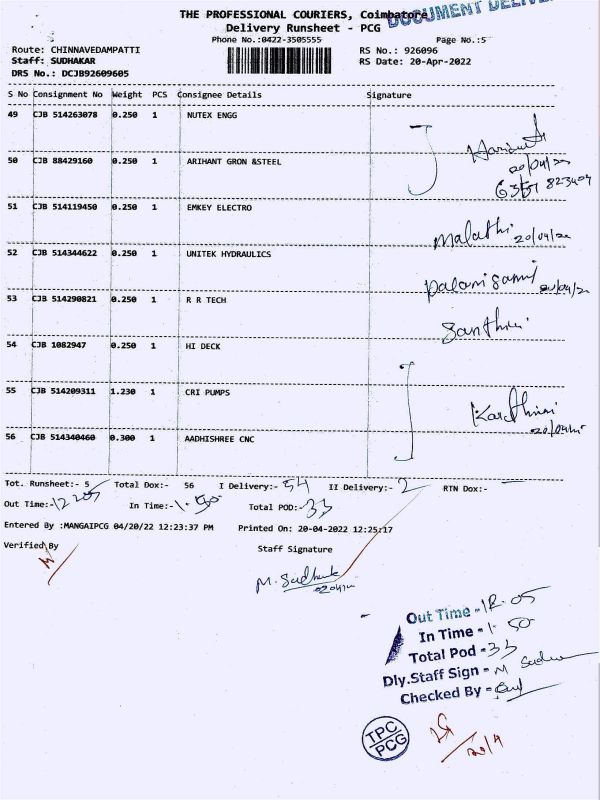 THE PROFESSIONAL COURIERS, Coimbatore
DOCUMENT
Delivery Runsheet - PCG
Phone No.:0422-3505555 Page No.:5
Route: CHINNAVEDAMPATTI RS No.: 926096
Staff: SUDHAKAR RS Date: 20-Apr-2022
DRS No.: DCJB92609605
S No Consignment No Weight PCS Consignee Details Signature
49 CJB 514263078 0.250 1 NUTEX ENGG
50 CJB 88429160 0.250 1 ARIHANT GRON &STEEL
20/04/22
51 CJB 514119450 0.250 1 EMKEY ELECTRO
Malathi 20/04/22
52 CJB 514344622 0.250 1 UNITEK HYDRAULICS
Palanisamy 20/04/22
53 CJB 514290821 0.250 1 R R TECH
Santhini
54 CJB 1082947 0.250 1 HI DECK
55 CJB 514209311 1.230 1 CRI PUMPS
56 CJB 514340460 0.300 1 AADHISHREE CNC
Tot. Runsheet:- 5 Total Dox:- 56 I Delivery:- 54 II Delivery:- 2 RTN Dox:- —
Out Time:- In Time:- 1-50 Total POD:- 33
Entered By :MANGAIPCG 04/20/22 12:23:37 PM Printed On: 20-04-2022 12:25:17
Verified By Staff Signature
M. Sudhakar
Out Time - 12-05
In Time - 1-50
Total Pod - 33
Dly.Staff Sign - M Sudhakar
Checked By -
TPC
PCG
20/4